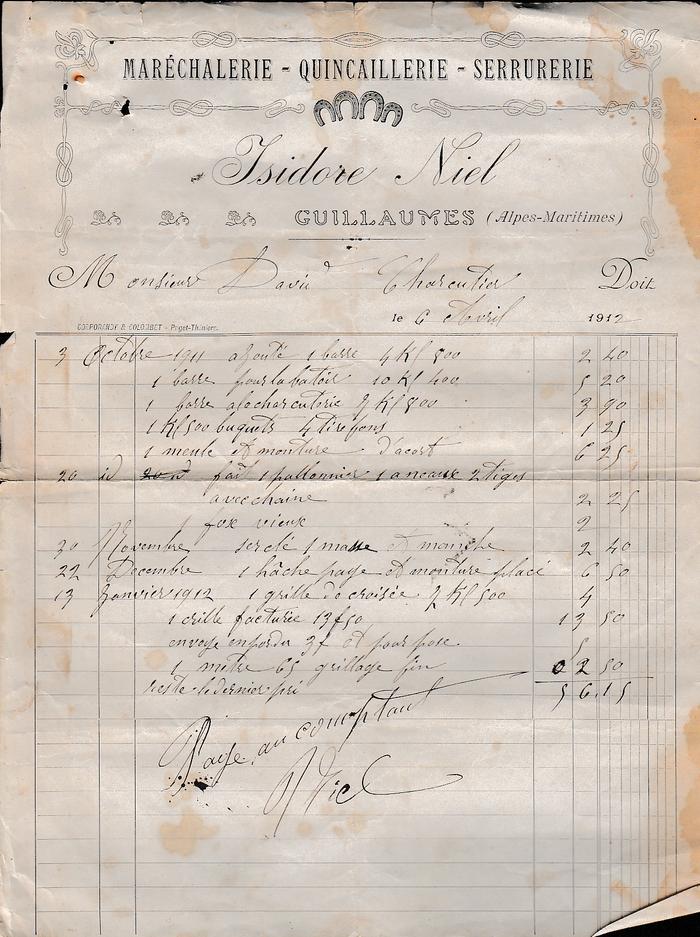 MARÉCHALERIE - QUINCAILLERIE - SERRURERIE
Isidore Niel
GUILLAUMES (Alpes-Maritimes)
Monsieur David Charcutier Doit
le 6 Avril 1912
CORPORANDY & COLOMBET - Puget-Théniers.
3 Octobre 1911 ajouté 1 barre 4 Kg 800 2 40
1 barre pour la batoir 10 Kg 400 5 20
1 barre a la charcuterie 7 Kg 800 3 90
1 Kg 500 4 tirefons 1 25
1 meule et monture d'acort 6 25
20 id fait 1 pallonnier 1 aneaux 2 tiges
avec chaine 2 25
1 fox vieux 2
30 Novembre serclé 1 masse et manche 2 40
22 Decembre 1 hâche paye et monture placé 6 50
13 Janvier 1912 1 grille de croisée 7 Kg 500 4
1 crille facturée 13 f 50 13 50
3 f et pour pose 5
1 metre 65 grillage fin 0 2 50
reste le dernier pri 56.15
Paye au comptant
Niel